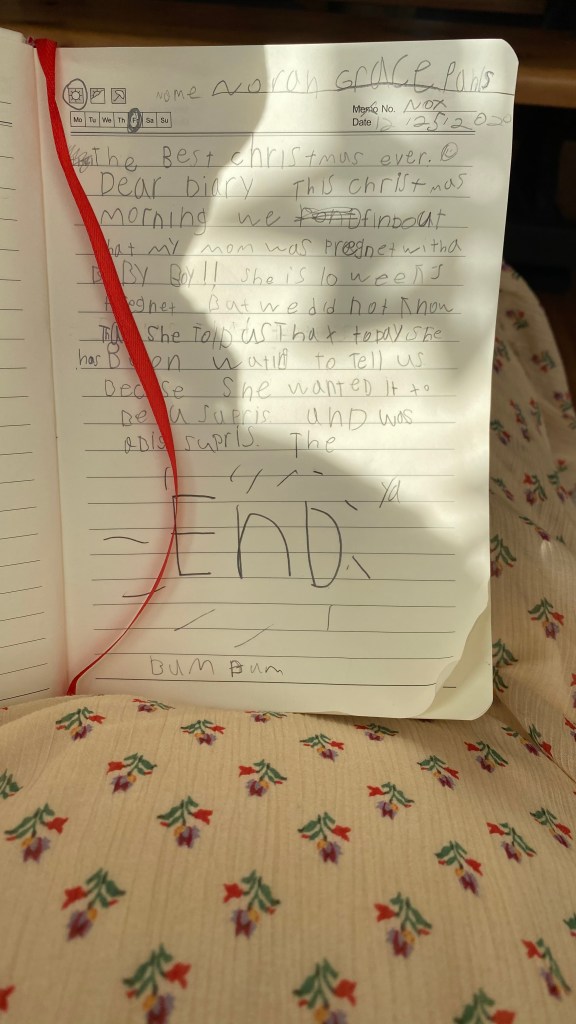 Nome Norah Grace Parks
Memo No. Nox
Mo Tu We Th Sa Su
Date 12/25/2020
The Best christmas ever.
Dear Diary This christmas
morning we findout
that my mom was Pregnet with a
BABY Boy!! She is 10 weeks
Pregnet But we did not know
She Told us That today She
has Been watid to Tell us
Becuse She wanted it to
Be a supris and was
abis supris. The
END
Ya
BUM Bum